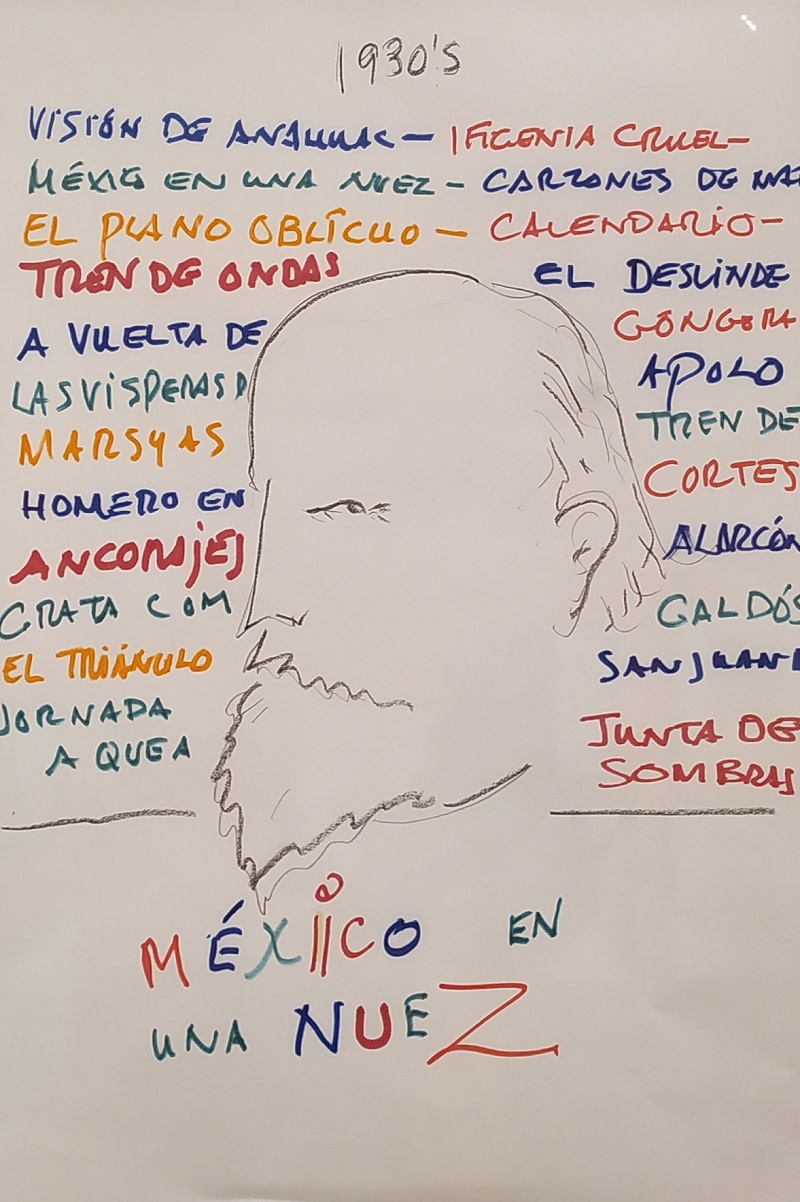 1930'S
VISIÓN DE ANAHUAC - IFIGENIA CRUEL-
MÉXICO EN UNA NUEZ - CARZONES DE MA
EL PLANO OBLÍCUO - CALENDARIO-
TREN DE ONDAS EL DESLINDE
A VUELTA DE GÓNGORA
LAS VISPERAS D APOLO
MARSYAS TREN DE
HOMERO EN CORTES
ANCORAJES ALARCÓN
GRATA COM GALDÓS
EL TRIÁNGULO SAN JUAN
JORNADA JUNTA DE
A QUE A SOMBRAS
MÉXIICO EN
UNA NUEZ